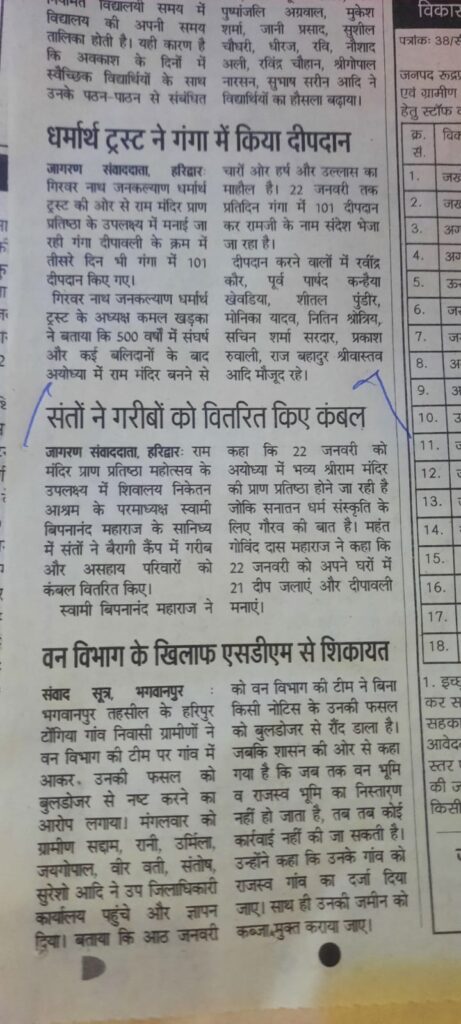 नियमित विद्यालयी समय में
विद्यालय की अपनी समय
तालिका होती है। यही कारण है
कि अवकाश के दिनों में
स्वैच्छिक विद्यार्थियों के साथ
उनके पठन-पाठन से संबंधित
पुष्पांजलि अग्रवाल, मुकेश
शर्मा, जानी प्रसाद, सुशील
चौधरी, धीरज, रवि, नौशाद
अली, रविंद्र चौहान, श्रीगोपाल
नारसन, सुभाष सरीन आदि ने
विद्यार्थियों का हौसला बढ़ाया।
धर्मार्थ ट्रस्ट ने गंगा में किया दीपदान
जागरण संवाददाता, हरिद्वारः
गिरवर नाथ जनकल्याण धर्मार्थ
ट्रस्ट की ओर से राम मंदिर प्राण
प्रतिष्ठा के उपलक्ष्य में मनाई जा
रही गंगा दीपावली के क्रम में
तीसरे दिन भी गंगा में 101
दीपदान किए गए।
गिरवर नाथ जनकल्याण धर्मार्थ
ट्रस्ट के अध्यक्ष कमल खड़का
ने बताया कि 500 वर्षों में संघर्ष
और कई बलिदानों के बाद
अयोध्या में राम मंदिर बनने से
चारों ओर हर्ष और उल्लास का
माहौल है। 22 जनवरी तक
प्रतिदिन गंगा में 101 दीपदान
कर रामजी के नाम संदेश भेजा
जा रहा है।
दीपदान करने वालों में रवींद्र
कौर, पूर्व पार्षद कन्हैया
खेवड़िया, शीतल पुंडीर,
मोनिका यादव, नितिन श्रोत्रिय,
सचिन शर्मा सरदार, प्रकाश
रुवाली, राज बहादुर श्रीवास्तव
आदि मौजूद रहे।
संतों ने गरीबों को वितरित किए कंबल
जागरण संवाददाता, हरिद्वारः राम
मंदिर प्राण प्रतिष्ठा महोत्सव के
उपलक्ष्य में शिवालय निकेतन
आश्रम के परमाध्यक्ष स्वामी
बिपनानंद महाराज के सानिध्य
में संतों ने बैरागी कैंप में गरीब
और असहाय परिवारों को
कंबल वितरित किए।
स्वामी बिपनानंद महाराज ने
कहा कि 22 जनवरी को
अयोध्या में भव्य श्रीराम मंदिर
की प्राण प्रतिष्ठा होने जा रही है
जोकि सनातन धर्म संस्कृति के
लिए गौरव की बात है। महंत
गोविंद दास महाराज ने कहा कि
22 जनवरी को अपने घरों में
21 दिप जलाएं और दीपावली
मनाएं।
वन विभाग के खिलाफ एसडीएम से शिकायत
संवाद सूत्र, भगवानपुर :
भगवानपुर तहसील के हरिपुर
टोंगिया गांव निवासी ग्रामीणों ने
वन विभाग की टीम पर गांव में
आकर उनकी फसल को
बुलडोजर से नष्ट करने का
आरोप लगाया। मंगलवार को
ग्रामीण सद्दाम, रानी, उर्मिला,
जयगोपाल, वीर वती, संतोष,
सुरेशो आदि ने उप जिलाधिकारी
कार्यालय पहुंचे और ज्ञापन
दिया। बताया कि आठ जनवरी
को वन विभाग की टीम ने बिना
किसी नोटिस के उनकी फसल
को बुलडोजर से रौंद डाला है।
जबकि शासन की ओर से कहा
गया है कि जब तक वन भूमि
व राजस्व भूमि का निस्तारण
नहीं हो जाता है, तब तब कोई
कार्रवाई नहीं की जा सकती है।
उन्होंने कहा कि उनके गांव को
राजस्व गांव का दर्जा दिया
जाए। साथ ही उनकी जमीन को
कब्जा मुक्त कराया जाए।
विका
पत्रांकः 38/
जनपद रुद्र
एवं ग्रामीण
हेतु स्टॉफ
क्र. सं.
1.
2.
3.
4.
5.
6.
7.
8.
9.
10.
11.
12.
13.
14.
15.
16.
17.
18.
1. इच्छ
कर स
सहका
आवेद
स्तर
की ज
किसी